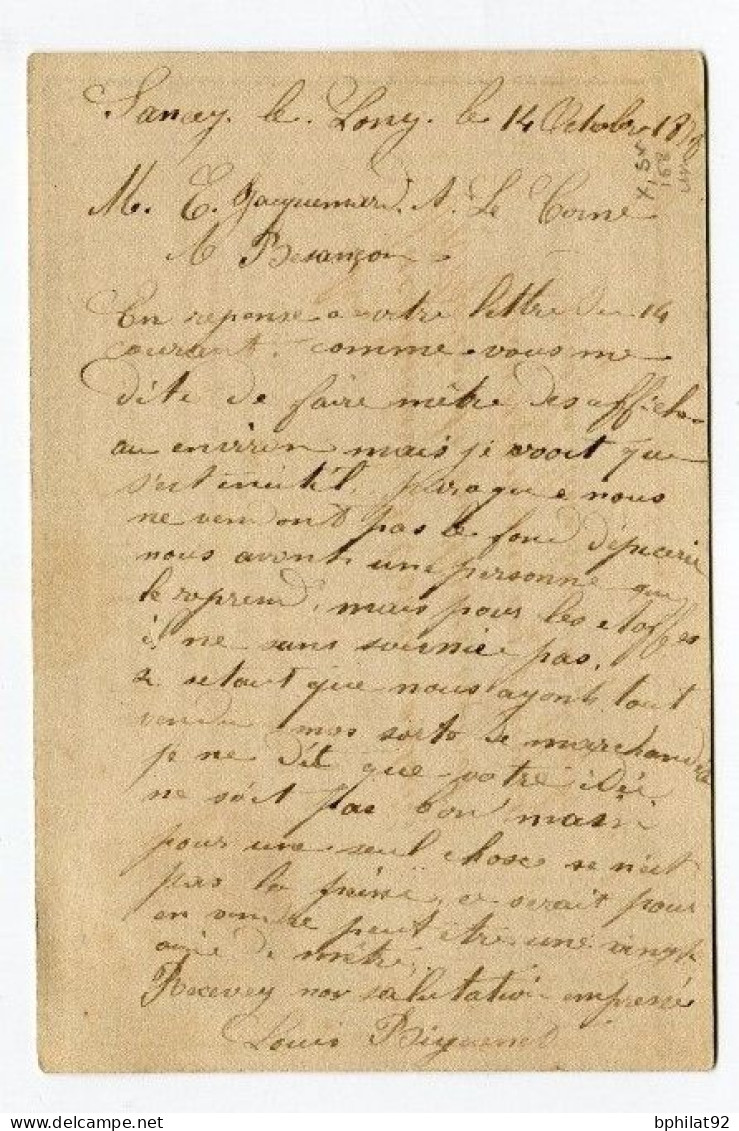 Sancey. le. Long. le 14 Octobre 1878
M. E. Jacquemard. A. Le Corne
A Besançon
En reponse a votre lettre du 14
courant. comme vous me
dite de faire mêtre des affiches
au environ mais je vooit que
s'est inutil. parraque nous
ne vendont pas le fond d'épicerie
nous avont une personne qui
le reprend, mais pour les etoffes
il ne sans soucnie pas.
si setait que nous ayont tout
vendu nos sorte de marchandise
je ne dit que votre idée
ne soit pas bon mais
pour une seul chose se n'est
pas la peine, ce serait pour
en vendre peut être une vingt
aine de mètre,
Recevez nos salutation empressé
Louis Biguenet
bphilat92